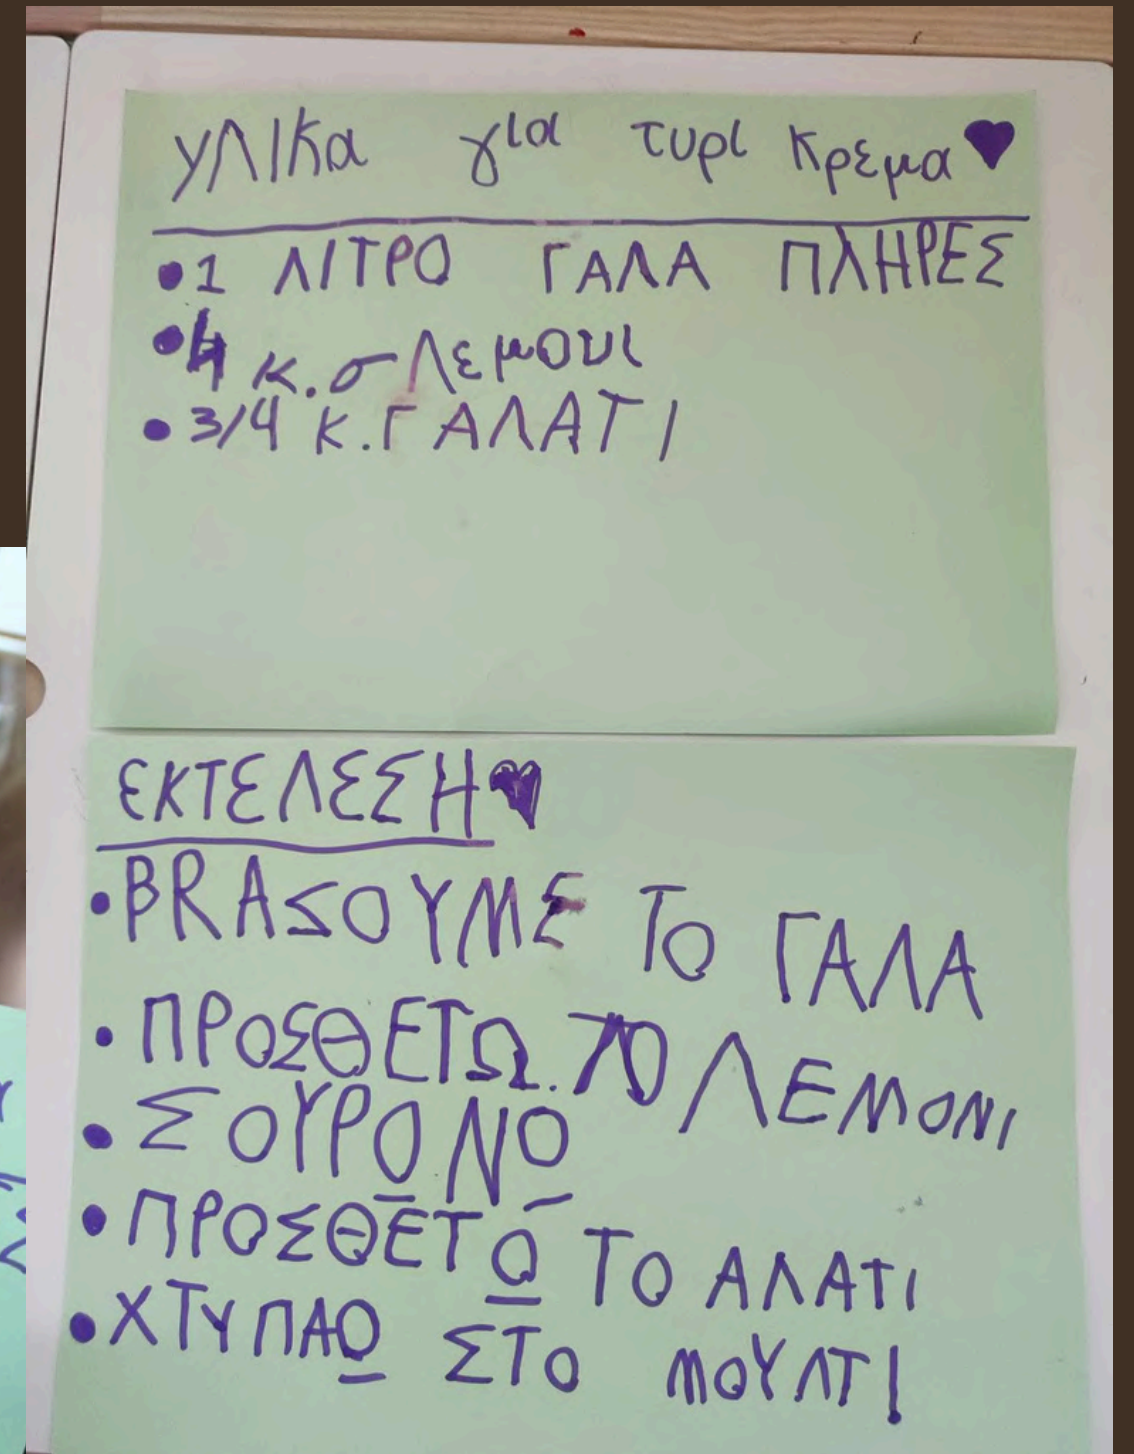 υΛΙΚα για τυρι κρεμα
1 ΛΙΤΡΟ ΓΑΛΑ ΠΛΗΡΕΣ
4 κ.σ Λεμουι
3/4 Κ.Γ ΑΛΑΤΙ
ΕΚΤΕΛΕΣΗ
BRAΣΟΥΜΕ Το ΓΑΛΑ
ΠΡΟΣΘΕΤΩ. ΤΟ ΛΕΜΟΝΙ
ΣΟΥΡΟΝΟ
ΠΡΟΣΘΕΤΟ ΤΟ ΑΛΑΤΙ
ΧΤΥΠΑΟ ΣΤΟ ΜΟΥΛΤΙ